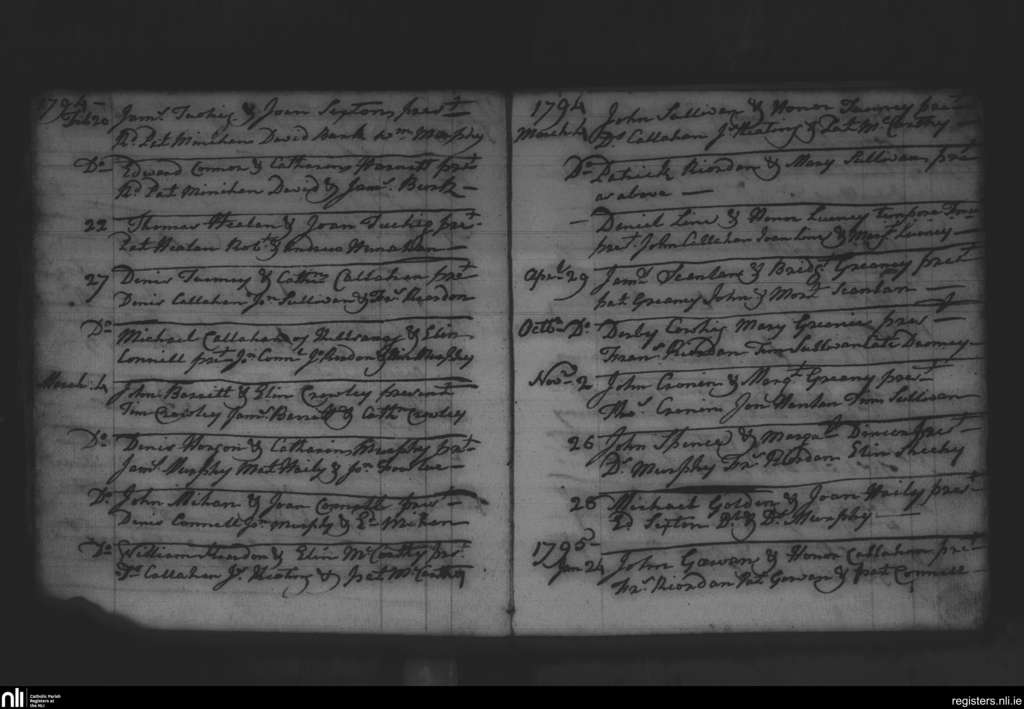 1794
Feb 20 Jam.s Tuohig & Joan Sexton pres.t
Rd. Pat Minihen David Wm Murphy
Do Edward Connor & Catharine Harnett pret
Rd. Pat Minihen David & Jams. Burk
22 Thomas Healan & Joan Tuohig pret
Pat Healan Robt & Andrew
27 Denis Tunney & Cathne Callahan pret
Denis Callahan Jn Sullivan & Frs Riordon
Do Michael Callahan of & Elin
Connell pret Jon Connl Jn Riordon & Murphy
March 4 John Barrett & Elin Crowley present
Tim Crowley Jams. Barrett & Cath Crowley
Do Denis Horgon & Catharine Murphy pret
Jams. Murphy Mat Haily & Jn
Do John Mihan & Joan Connell pret
Denis Connell Jn Murphy & Ed Mihan
Do William & Elin McCarthy pret
Do Callahan Jn Keating & pat McCarthy
1794
March 4 John Sullivan & Honor Tunney pret
Ds Callahan Jn Keating & Pat McCarthy
Do Patrick Riordan & Mary Sullivan pret
as above
Daniel Line & Honor Lucney tempore
pret John Callahan Joan Line & Margt Lucney
April 29 Jams Scanlane & Bridgt Greaney pret
pat Greaney John & Scanlan
Octbr Do Derby Mary Greanie pret
Frans Riordan Tim Sullivan Cate
Novr 2 John Cronin & Margt Greany pret
Thos Cronin Jon Hanlan Tim Sullivan
26 John Spence & Margat pret
Ds Murphy Frs Riordan Elin Sheehy
26 Michael Golden & Joan Haily pret
Ed Sexton D. & Ds Murphy
1795
Jan 24 John Gowan & Honor Callahan pret
Frs Riordan Pat Gowan & pat Connell
nli Catholic Parish
Registers at
the NLI
registers.nli.ie